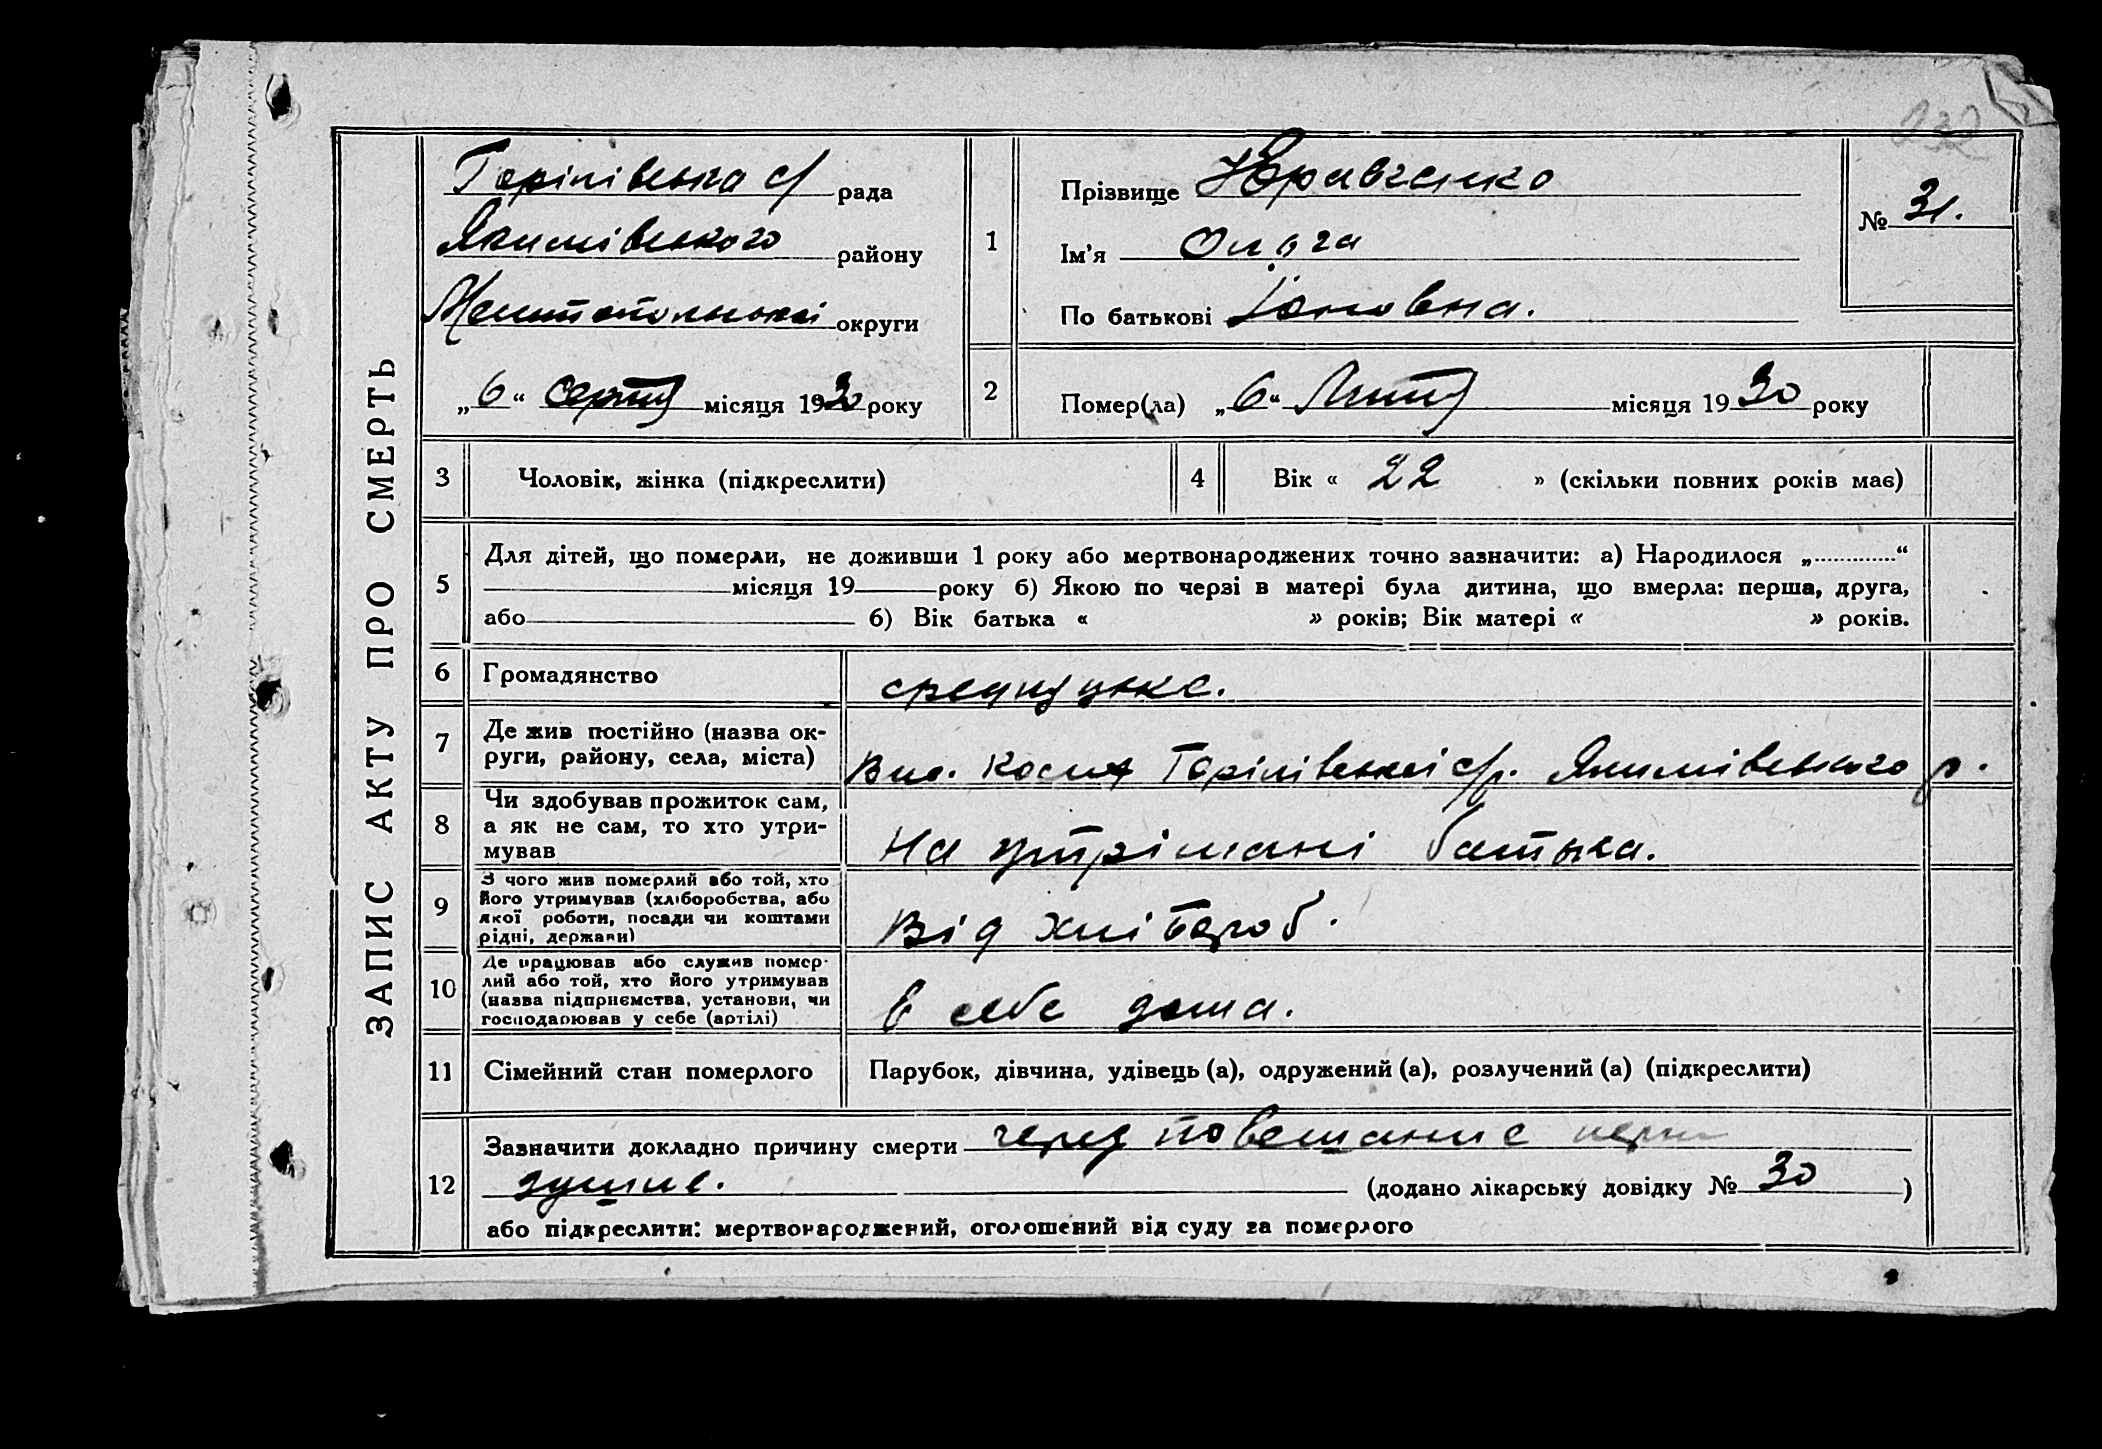 232
ЗАПИС АКТУ ПРО СМЕРТЬ
Горілівська с/ рада
Якимівського району
Мелітопольської округи
„6“ серпня місяця 1930 року
1
Прізвище Кравченко
Ім'я Ольга
По батькові Іоновна.
№ 31.
2
Помер(ла) „6“ Липня місяця 1930 року
3 Чоловік, жінка (підкреслити)
4 Вік « 22 » (скільки повних років має)
5
Для дітей, що померли, не доживши 1 року або мертвонароджених точно зазначити: а) Народилося „ “
місяця 19 року б) Якою по черзі в матері була дитина, що вмерла: перша, друга,
або б) Вік батька « » років; Вік матері « » років.
6 Громадянство
7 Де жив постійно (назва ок-
руги, району, села, міста)
Вис. Горілівської с/р. Якимівського р.
8 Чи здобував прожиток сам,
а як не сам, то хто утри-
мував
На утрімані батька.
9 З чого жив померлий або той, хто
його утримував (хліборобства, або
якої роботи, посади чи коштами
рідні, держави)
Від хлібороб.
10 Де працював або служив помер-
лий або той, хто його утримував
(назва підприємства, установи, чи
господарював у себе (артілі)
в себе дома.
11 Сімейний стан померлого
Парубок, дівчина, удівець (а), одружений (а), розлучений (а) (підкреслити)
12
Зазначити докладно причину смерти через повешание
(додано лікарську довідку № 30 )
або підкреслити: мертвонароджений, оголошений від суду за померлого